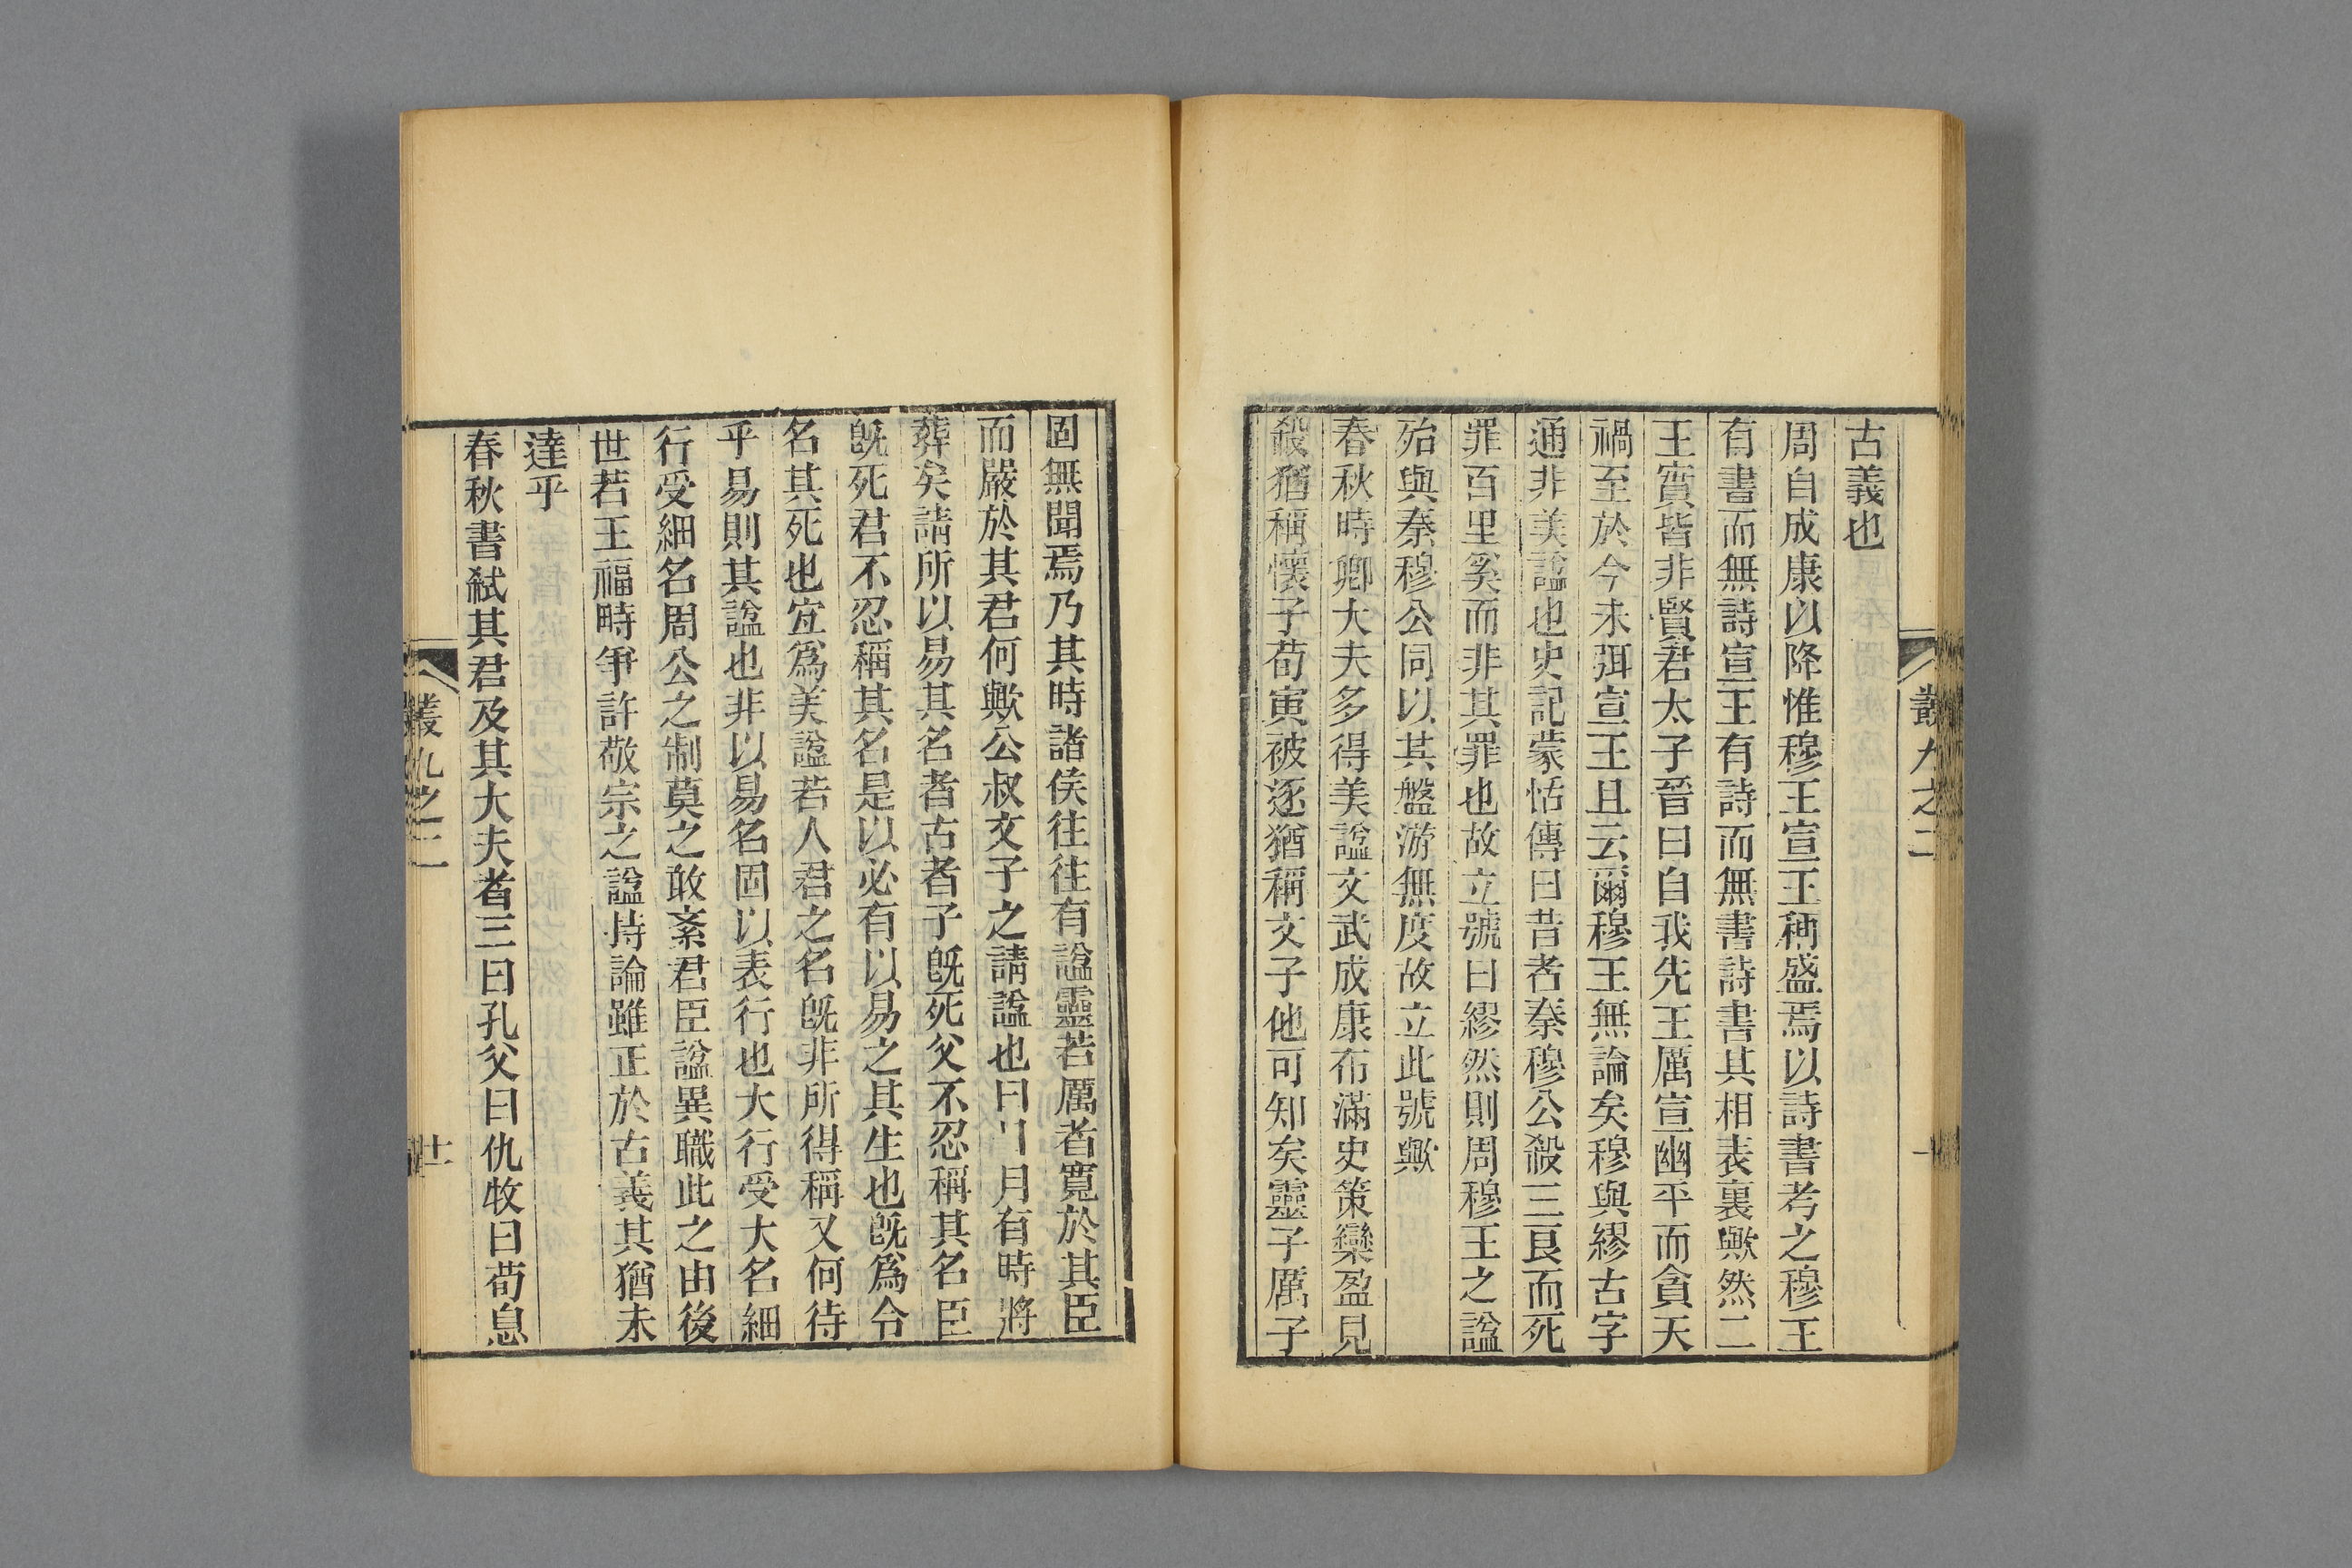 古義也
周自成康以降惟穆王宣王稱盛焉以詩書考之穆王
有書而無詩宣王有詩而無書詩書其相表裏歟然二
王實皆非賢君太子晉曰自我先王厲宣幽平而貪天
禍至於今未弭宣王且云爾穆王無論矣穆與繆古字
通非美諡也史記蒙恬傳曰昔者秦穆公殺三良而死
罪百里奚而非其罪也故立號曰繆然則周穆王之諡
殆與秦穆公同以其盤游無度故立此號歟
春秋時卿大夫多得美諡文武成康布滿史策欒盈見
殺猶稱懷子荀寅被逐猶稱文子他可知矣靈子厲子
固無聞焉乃其時諸侯往往有諡靈若厲者寬於其臣
而嚴於其君何歟公叔文子之請諡也曰日月有時將
葬矣請所以易其名者古者子旣死父不忍稱其名臣
旣死君不忍稱其名是以必有以易之其生也旣爲令
名其死也宜爲美諡若人君之名旣非所得稱又何待
乎易則其諡也非以易名固以表行也大行受大名細
行受細名周公之制莫之敢紊君臣諡異職此之由後
世若王福畤爭許敬宗之諡持論雖正於古義其猶未
達乎
春秋書弒其君及其大夫者三曰孔父曰仇牧曰荀息
叢九之二